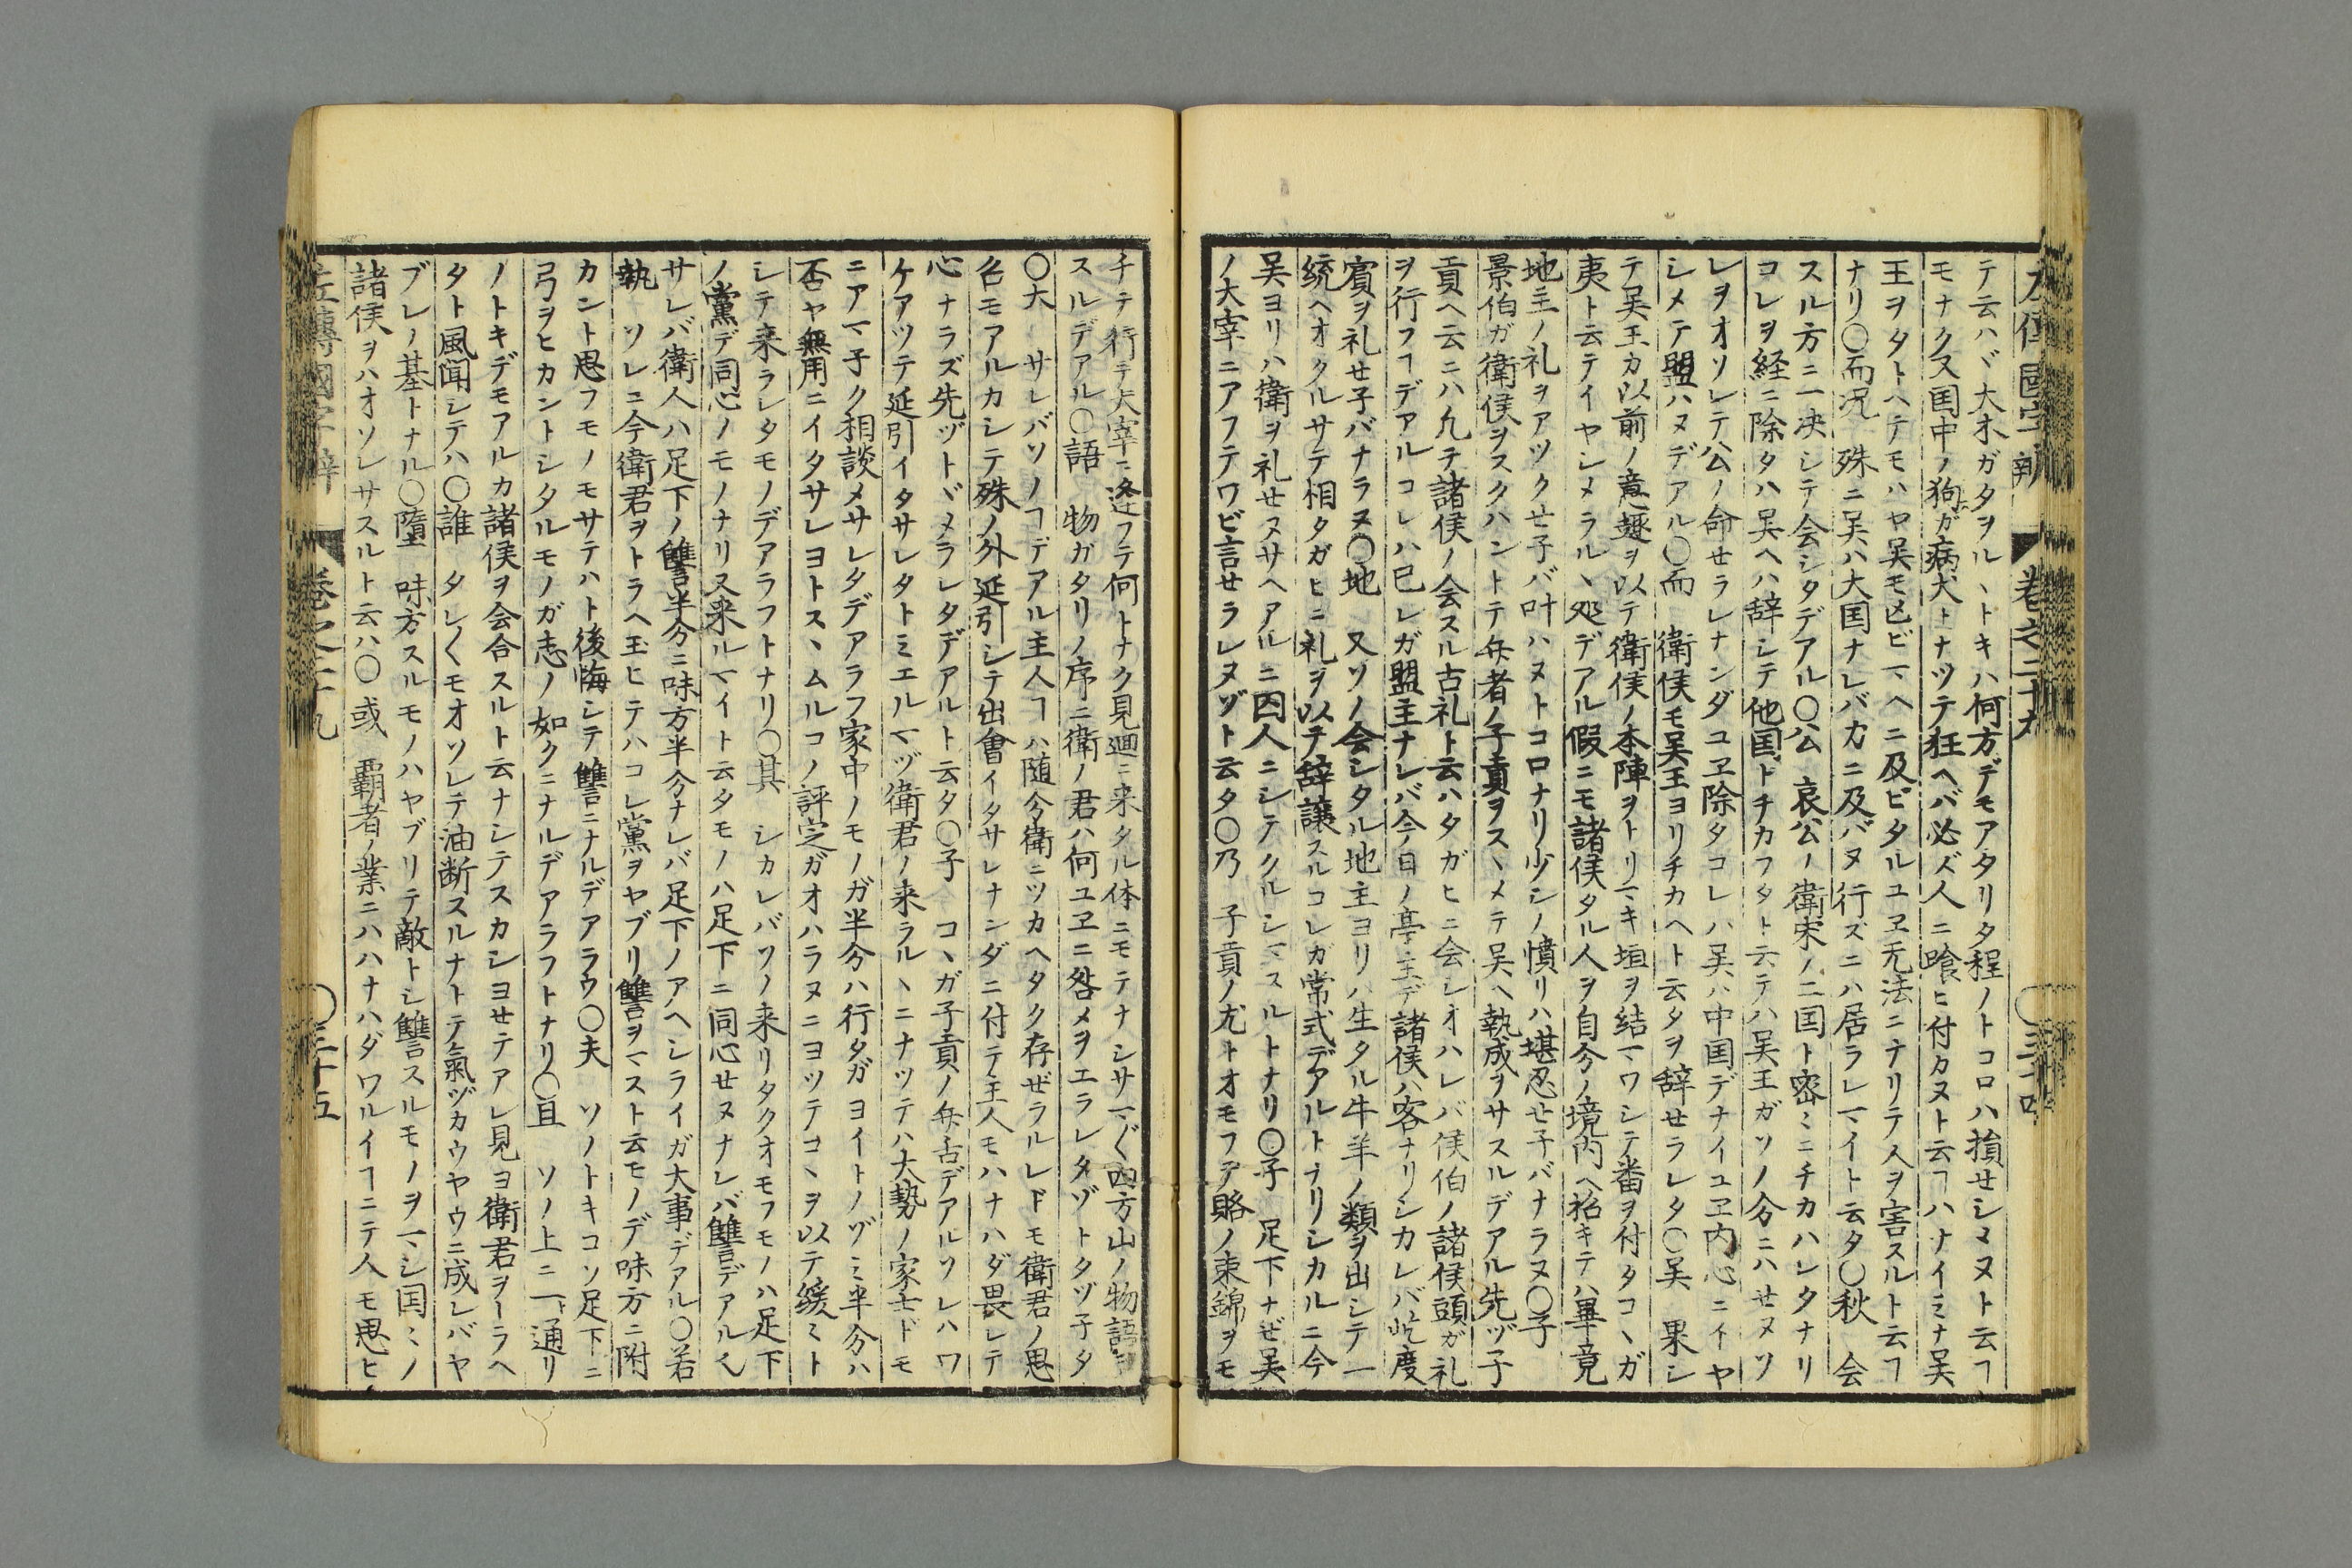 左傳國字辨 巻之二十九 〇三十四
テ云ハヾ大木ガタヲルヽトキハ何方デモアタリタ程ノトコロハ損セシマヌト云ヿ
モナク又国中ノ狗ガ病犬トナツテ狂ヘバ必ズ人ニ喰ヒ付カヌト云ヿハナイミナ呉
王ヲタトヘテモハヤ呉モ亡ビマヘニ及ビタルユヱ无法ニナリテ人ヲ害スルト云ヿ
ナリ〇而况 殊ニ呉ハ大国ナレバ力ニ及バヌ行ズニハ居ラレマイト云タ〇秋 会
スル方ニ一决シテ会シタデアル〇公 哀公ノ衛宋ノ二国ト密ミニチカハレタナリ
コレヲ経ニ除タハ呉ヘハ辞シテ他国トチカフタト云テハ呉王ガソノ分ニハせヌソ
レヲオソレテ公ノ命せラレナンダユヱ除タコレハ呉ハ中国デナイユヱ内心ニイヤ
シメテ盟ハヌデアル〇而 衛侯モ呉王ヨリチカヘト云タヲ辞せラレタ〇呉 果シ
テ呉王カ以前ノ意趣ヲ以テ衛侯ノ本陣ヲトリマキ垣ヲ結マワシテ番ヲ付タコヽガ
夷ト云テイヤシメラルヽ処デアル假ニモ諸侯タル人ヲ自分ノ境内ヘ招キテハ畢竟
地主ノ礼ヲアツクせ子バ叶ハヌトコロナリ少シノ憤リハ堪忍せ子バナラヌ〇子
景伯ガ衛侯ヲスクハントテ弁者ノ子貢ヲスヽメテ呉ヘ執成ヲサスルデアル先ヅ子
貢ヘ云ニハ凡テ諸侯ノ会スル古礼ト云ハタガヒニ会シオハレバ侯伯ノ諸侯頭ガ礼
ヲ行フヿデアルコレハ已レガ盟主ナレバ今日ノ亭主デ諸侯ハ客ナリシカレバ屹度
賓ヲ礼せ子バナラヌ〇地 又ソノ会シタル地主ヨリハ生タル牛羊ノ類ヲ出シテ一
統ヘオクルサテ相タガヒニ礼ヲ以テ辞讓スルコレガ常式デアルトナリシカルニ今
呉ヨリハ衛ヲ礼せヌサヘアルニ囚人ニシテクルシマスルトナリ〇子 足下ナぜ呉
ノ大宰ニアフテワビ言せラレヌゾト云タ〇乃 子貢ノ尤トオモフテ賂ノ束錦ヲモ
チテ行テ大宰ニ逢フテ何トナク見廻ニ来タル体ニモテナシサマ〲四方山ノ物語ヲ
スルデアル〇語 物ガタリノ序ニ衛ノ君ハ何ユヱニ咎メヲエラレタゾトタヅ子タ
〇大 サレバソノヿデアル主人ヿハ随分衛ニツカヘタク存ぜラルレドモ衛君ノ思
召モアルカシテ殊ノ外延引シテ出會イタサレナンダニ付テ主人モハナハダ畏レテ
心ナラズ先ヅトヾメラレタデアルト云タ〇子 コヽガ子貢ノ弁舌デアルソレハワ
ケアツテ延引イタサレタトミエルマヅ衛君ノ来ラルヽニナツテハ大勢ノ家士ドモ
ニアマ子ク相談メサレタデアラフ家中ノモノガ半分ハ行タガヨイトノゾミ半分ハ
否ヤ無用ニイタサレヨトスヽムルコノ評定ガオハラヌニヨツテコヽヲ以テ緩ミト
シテ来ラレタモノデアラフトナリ〇其 シカレバソノ来リタクオモフモノハ足下
ノ黨デ同心ノモノナリ又来ルマイト云タモノハ足下ニ同心せヌナレバ讐デアル〱
サレバ衛人ハ足下ノ讐半分ニ味方半分ナレバ足下ノアヘシライガ大事デアル〇若
執 ソレニ今衛君ヲトラヘ玉ヒテハコレ黨ヲヤブリ讐ヲマスト云モノデ味方ニ附
カント思フモノモサテハト後悔シテ讐ニナルデアラウ〇夫 ソノトキコソ足下ニ
弓ヲヒカントシタルモノガ志ノ如クニナルデアラフトナリ〇且 ソノ上ニ一ト通リ
ノトキデモアルカ諸侯ヲ会合スルト云ナシテスカシヨせテアレ見ヨ衛君ヲトラヘ
タト風聞シテハ〇誰 タレ〱モオソレテ油断スルナトテ氣ヅカウヤウニ成レバヤ
ブレノ基トナル〇墮 味方スルモノハヤブリテ敵トシ讐スルモノヲマシ国ミノ
諸侯ヲハオソレサスルト云ハ〇或 覇者ノ業ニハハナハダワルイヿニテ人モ思ヒ
左傳國字辨 巻之二十九 〇三十五